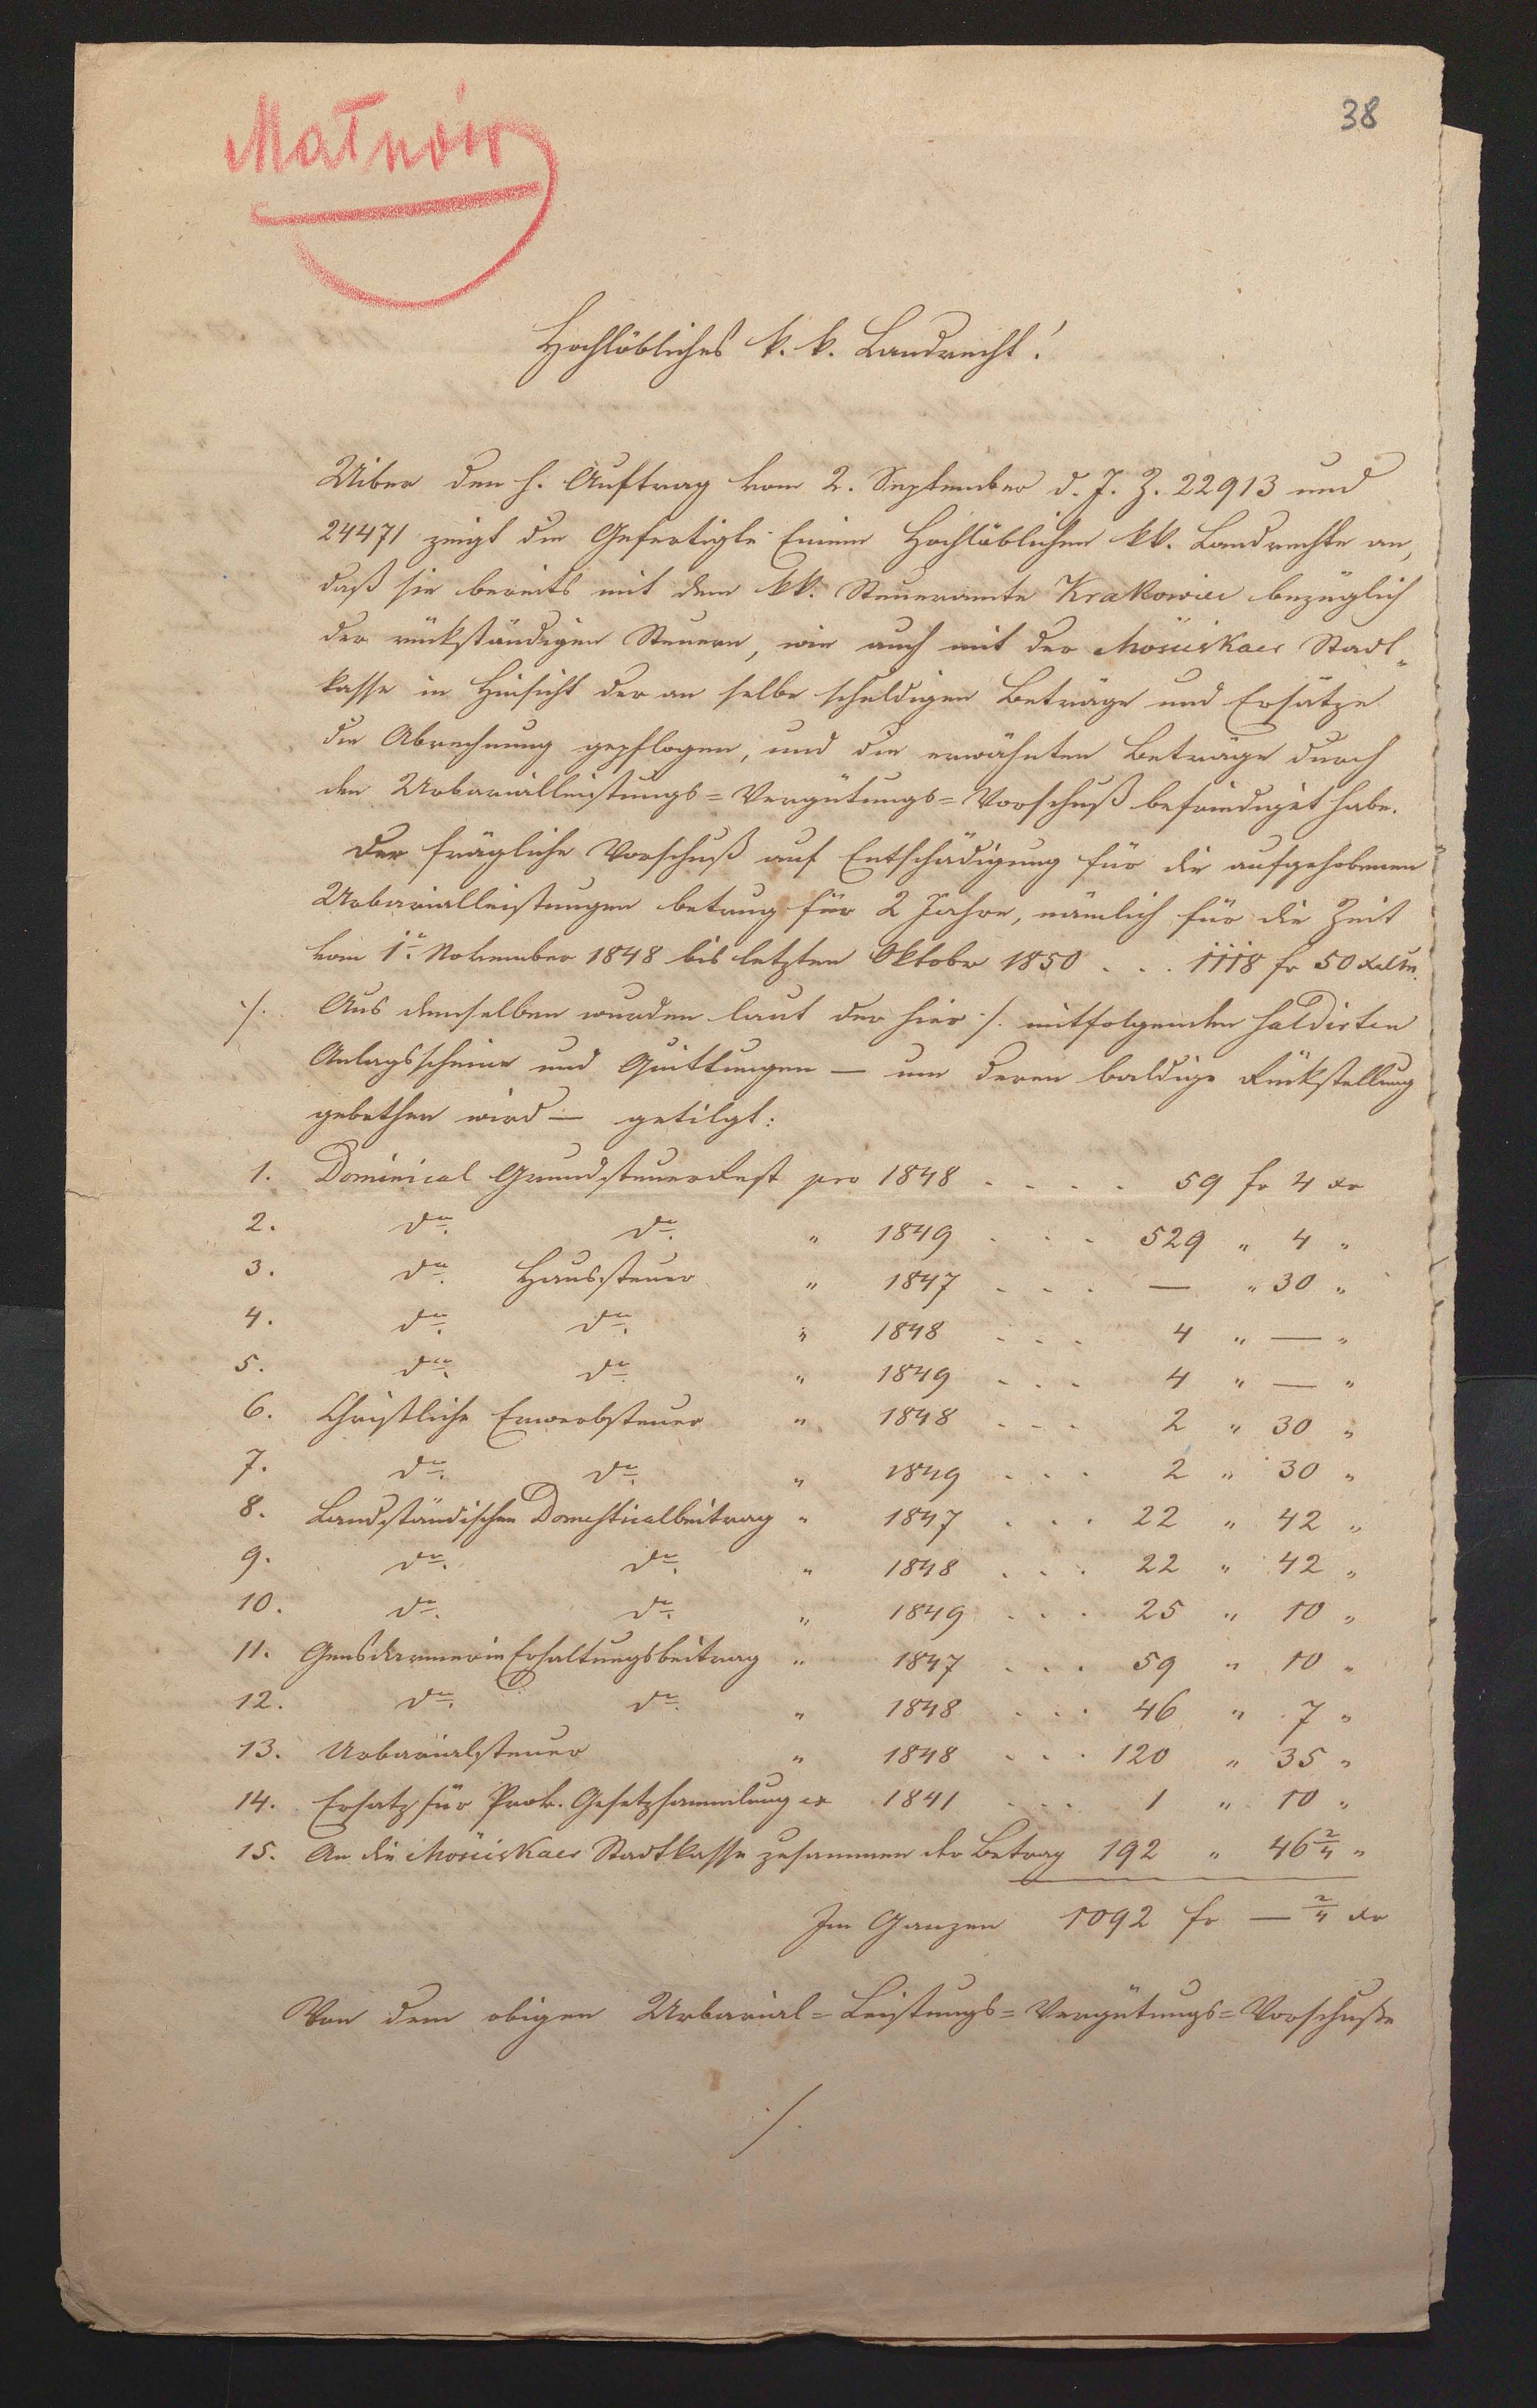 38
Małnów
Hochlöbliches k. k. Landrecht!
Uiber den h. Auftrag vom 2. September d. J. Z. 22913 und
24471 zeigt die Gefertigte Einem Hochlöblichen kk. Landrechte an,
daß sie bereits mit dem kk. Steueramte Krakowiec bezüglich
der rückständigen Steuern, wie auch mit der Mościskaer Stadt„
kasse in Hinsicht der an selbe schuldigen Beträge und Ersätze
die Abrechnung gepflogen, und die erwähnten Beträge durch
den Urbarialleistungs=Vergütungs=Vorschuß befriediget habe.
Der fragliche Vorschuß auf Entschädigung für die aufgehobenen
Urbarialleistungen betrug für 2 Jahre, nämlich für die Zeit
vom 1n. November 1848 bis letzten Oktober 1850 . . . 1118 fr 50 xr
./. Aus demselben wurden laut der hier ./. mitfolgenden saldirten
Anlagsscheine und Quittungen — um deren baldige Rückstellung
gebethen wird — getilgt:
1. Dominical Grundsteuerrest pro 1848 . . . . 59 fr 4 xr
2. do. do. " 1849 . . . 529 " 4 "
3. do. Haussteuer " 1847 . . . — " 30 "
4. do. do. " 1848 . . . 4 " — "
5. do. do. " 1849 . . . 4 " — "
6. Christliche Erwerbsteuer " 1848 . . . 2 " 30 "
7. do. do. " 1849 . . . 2 " 30 "
8. Landständischen Domesticalbeitrag " 1847 . . . 22 " 42 "
9. do. do. " 1848 . . . 22 " 42 "
10. do. do. " 1849 . . . 25 " 10 "
11. Gensdarmerie Erhaltungsbeitrag " 1847 . . . 59 " 10 "
12. do. do. " 1848 . . . 46 " 7 "
13. Urbarialsteuer " 1848 . . . 120 " 35 "
14. Ersatz für Prov. Gesetzsammlung ex 1841 . . . 1 " 10 "
15. An die Mościskaer Stadtkasse zusammen der Betrag 192 " 46 2/4 "
Im Ganzen 1092 fr — 2/4 xr
Von dem obigen Urbarial=Leistungs=Vergütungs=Vorschuße
./.